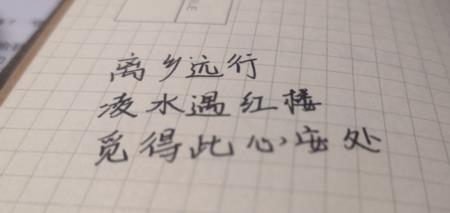 离乡远行
凌水遇红楼
觅得此心安处